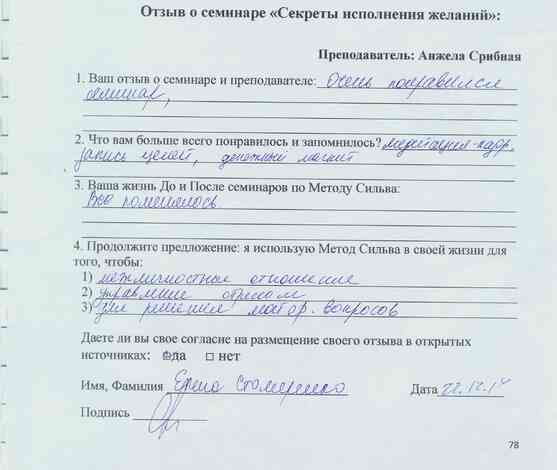 Отзыв о семинаре «Секреты исполнения желаний»:
Преподаватель: Анжела Срибная
1. Ваш отзыв о семинаре и преподавателе: Очень понравился
семинар,
2. Что вам больше всего понравилось и запомнилось? медитация-
запись целей, денежный магнит
3. Ваша жизнь До и После семинаров по Методу Сильва:
Все поменялось
4. Продолжите предложение: я использую Метод Сильва в своей жизни для
того, чтобы:
1) межличностные отношение
2) управление
3) для решения матер. вопросов
Даете ли вы свое согласие на размещение своего отзыва в открытых
источниках: да нет
Имя, Фамилия Дата 22.12.14
Подпись
78